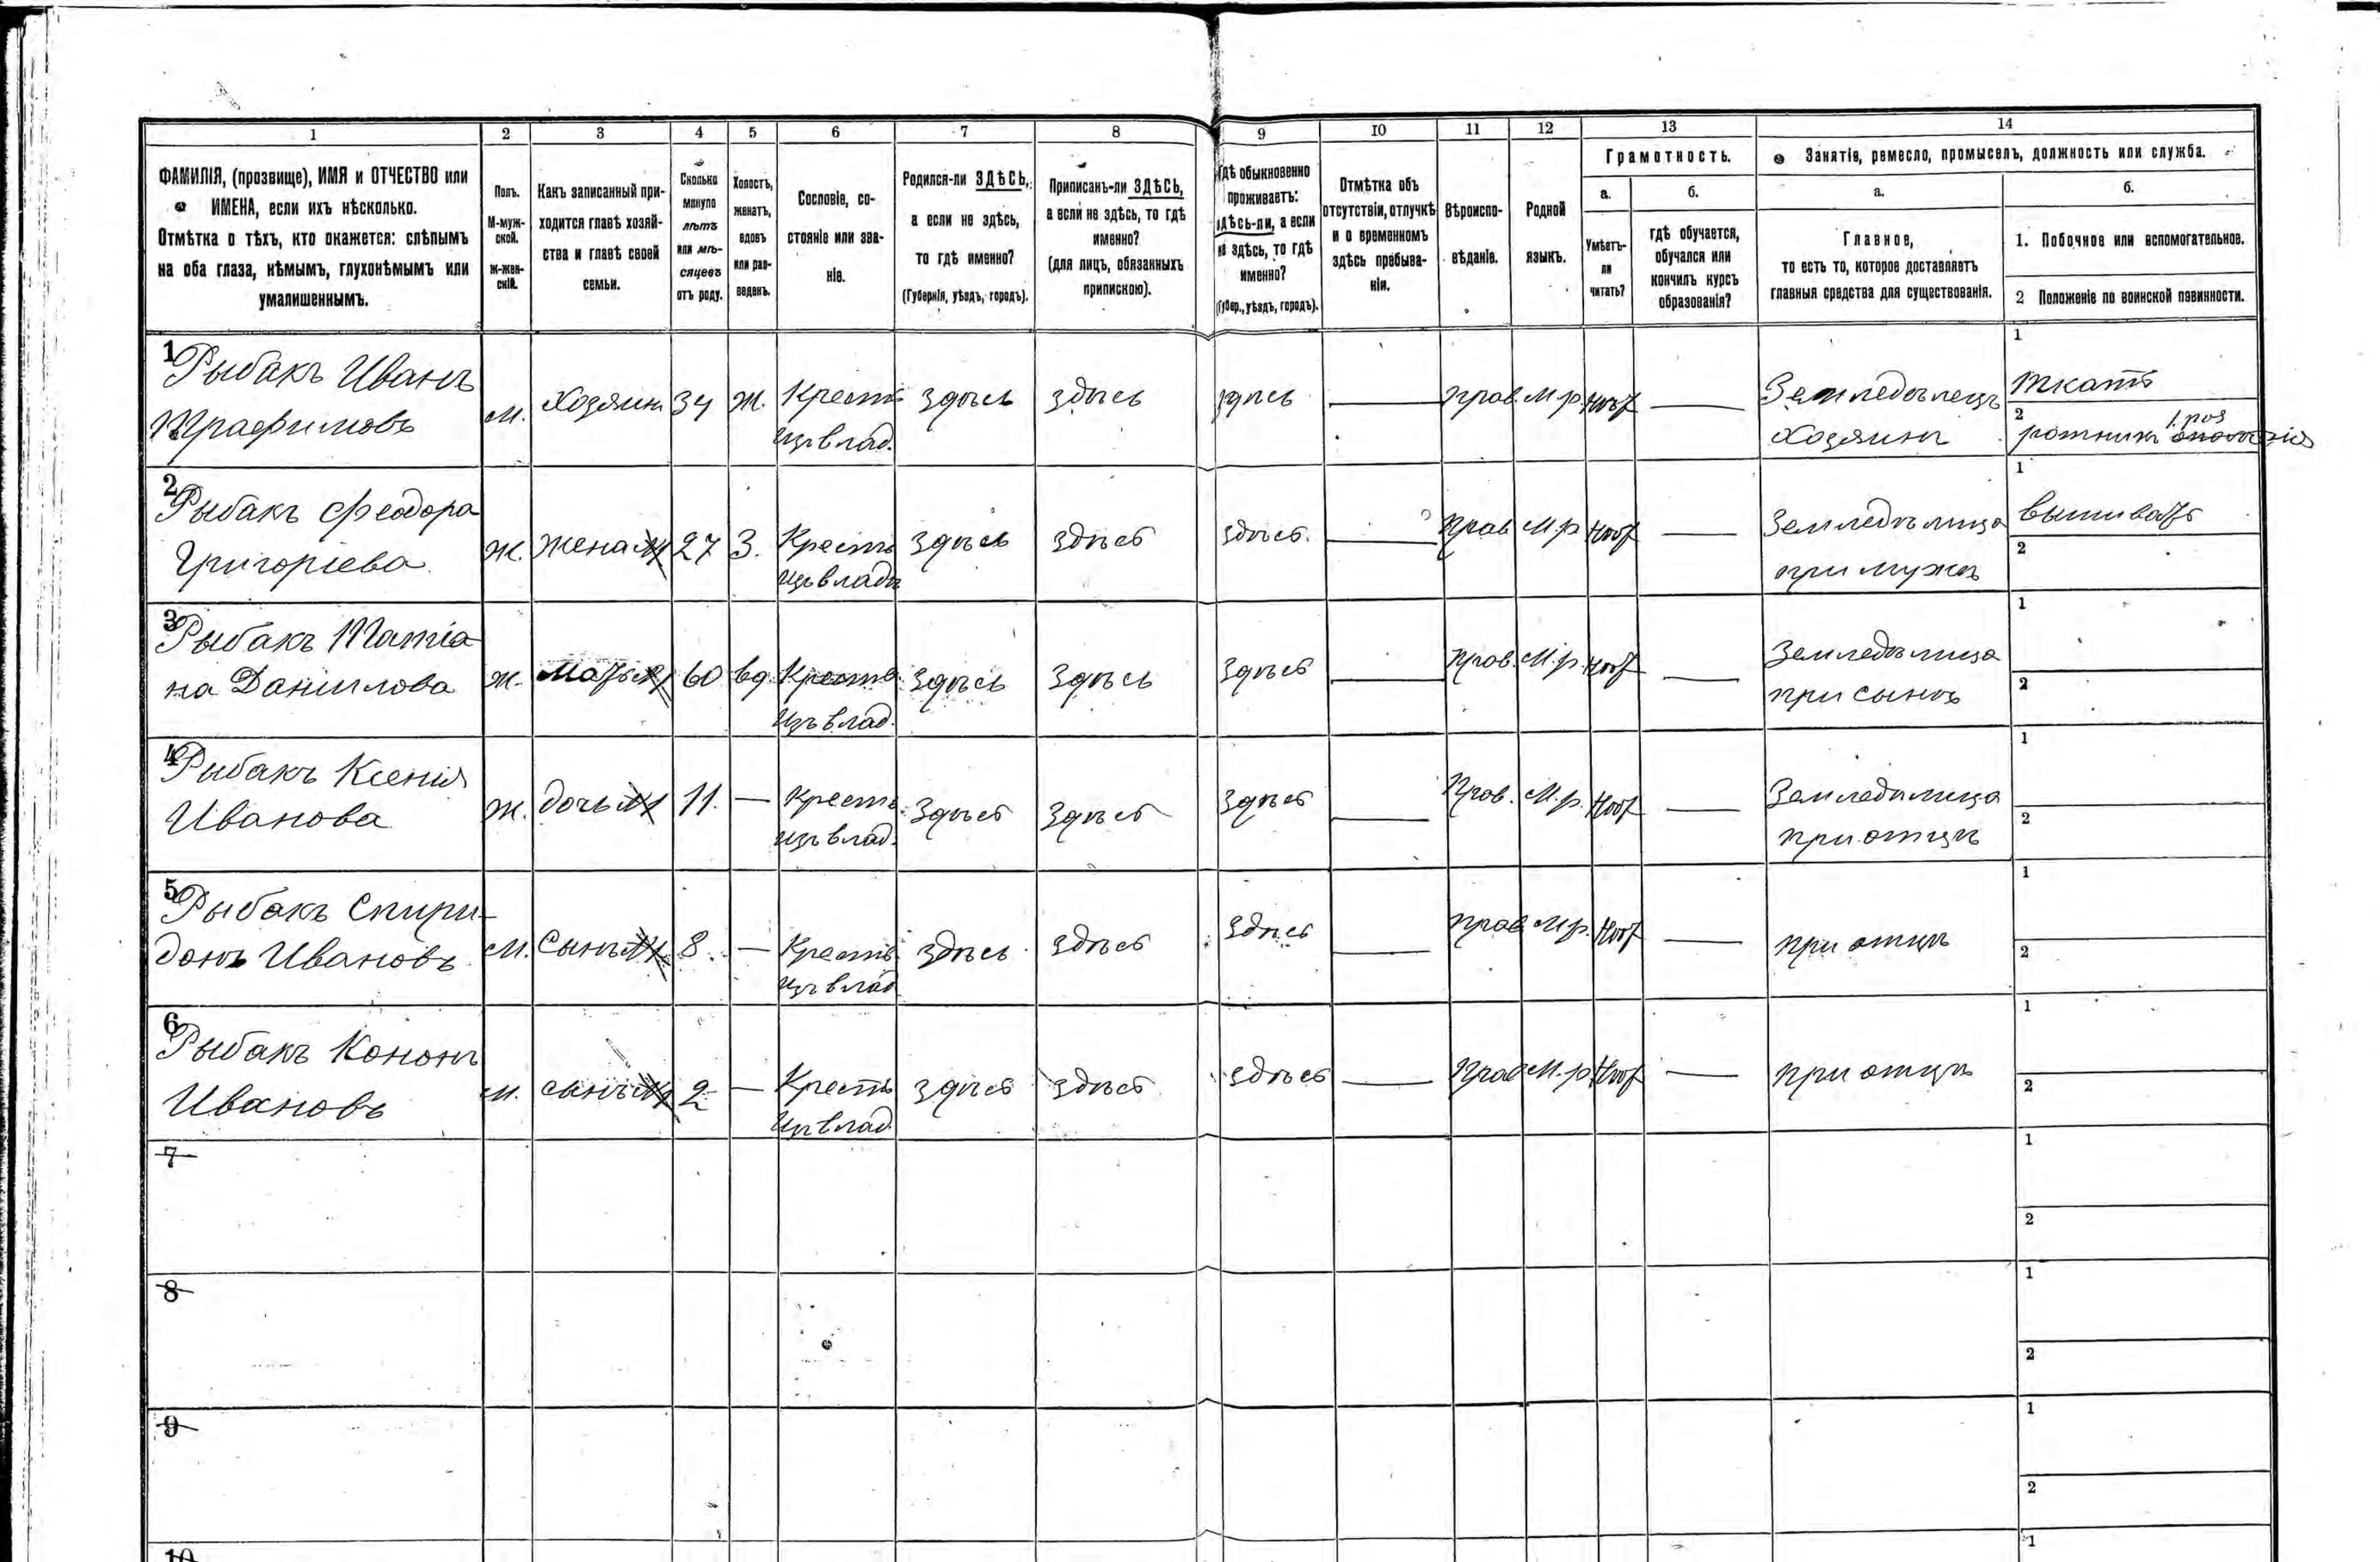 1
2
3
4
5
6
7
8
9
10
11
12
13
14
ФАМИЛІЯ, (прозвище), ИМЯ и ОТЧЕСТВО или
ИМЕНА, если ихъ нѣсколько.
Отмѣтка о тѣхъ, кто окажется: слѣпымъ
на оба глаза, нѣмымъ, глухонѣмымъ или
умалишеннымъ.
Полъ.
М-муж-
ской.
Ж-жен-
скій.
Какъ записанный при-
ходится главѣ хозяй-
ства и главѣ своей
семьи.
Сколько
минуло
лѣтъ
или мѣ-
сяцевъ
отъ роду.
Холостъ,
женатъ,
вдовъ
или раз-
веденъ.
Сословіе, со-
стояніе или зва-
ніе.
Родился-ли ЗДѢСЬ,
а если не здѣсь,
то гдѣ именно?
(Губернія, уѣздъ, городъ).
Приписанъ-ли ЗДѢСЬ,
а если не здѣсь, то гдѣ
именно?
(для лицъ, обязанныхъ
припискою).
гдѣ обыкновенно
проживаетъ:
здѣсь-ли, а если
не здѣсь, то гдѣ
именно?
(Губер., уѣздъ, городъ).
Отмѣтка объ
отсутствіи, отлучкѣ
и о временномъ
здѣсь пребыва-
ніи.
Вѣроиспо-
вѣданіе.
Родной
языкъ.
Грамотность.
а.
б.
Умѣетъ-
ли
читать?
гдѣ обучается,
обучался или
кончилъ курсъ
образованія?
Занятіе, ремесло, промыселъ, должность или служба.
а.
б.
Главное,
то есть то, которое доставляетъ
главныя средства для существованія.
1. Побочное или вспомогательное.
2 Положеніе по воинской повинности.
1
Рыбакъ Иванъ
Трафимовъ
м.
Хозяин
34
ж.
Крест
изъ влад.
здѣсь
здѣсь
здѣсь
—
прав.
М.р.
нѣт
—
Земледѣлецъ
Хозяинъ
1
ткать
2
1 раз
ратникъ
2
Рыбакъ Феодора
Григоріева
ж.
жена
27
З.
Кресть
изъ влад
здѣсь
здѣсь
здѣсь.
—
прав
М.р
нѣт
—
Земледѣлица
при мужѣ
1
вышивать
2
3
Рыбакъ Татіа
на Данилова
ж.
мать
60
вд.
Кресть
изъ влад.
здѣсь
здѣсь
здѣсь
—
прав.
М.р.
нѣт
—
Земледѣлица
при сынѣ
1
2
4
Рыбакъ Ксенія
Иванова
ж.
дочь
11.
—
Кресть
изъ влад.
здѣсь
здѣсь
здѣсь
—
Прав.
М.р.
нѣт
—
Земледѣлица
при отцѣ
1
2
5
Рыбакъ Спири-
донъ Ивановъ
м.
Сынъ
8.
—
Кресть
изъ влад
здѣсь
здѣсь
здѣсь
—
прав
М.р.
нѣт
—
при отцѣ
1
2
6
Рыбакъ Кононъ
Ивановъ
м.
сынъ
2
—
Кресть
изъ влад.
здѣсь
здѣсь
здѣсь
—
Прав
М.р
нѣт
—
при отцѣ
1
2
7
1
2
8
1
2
9
1
2
10
1